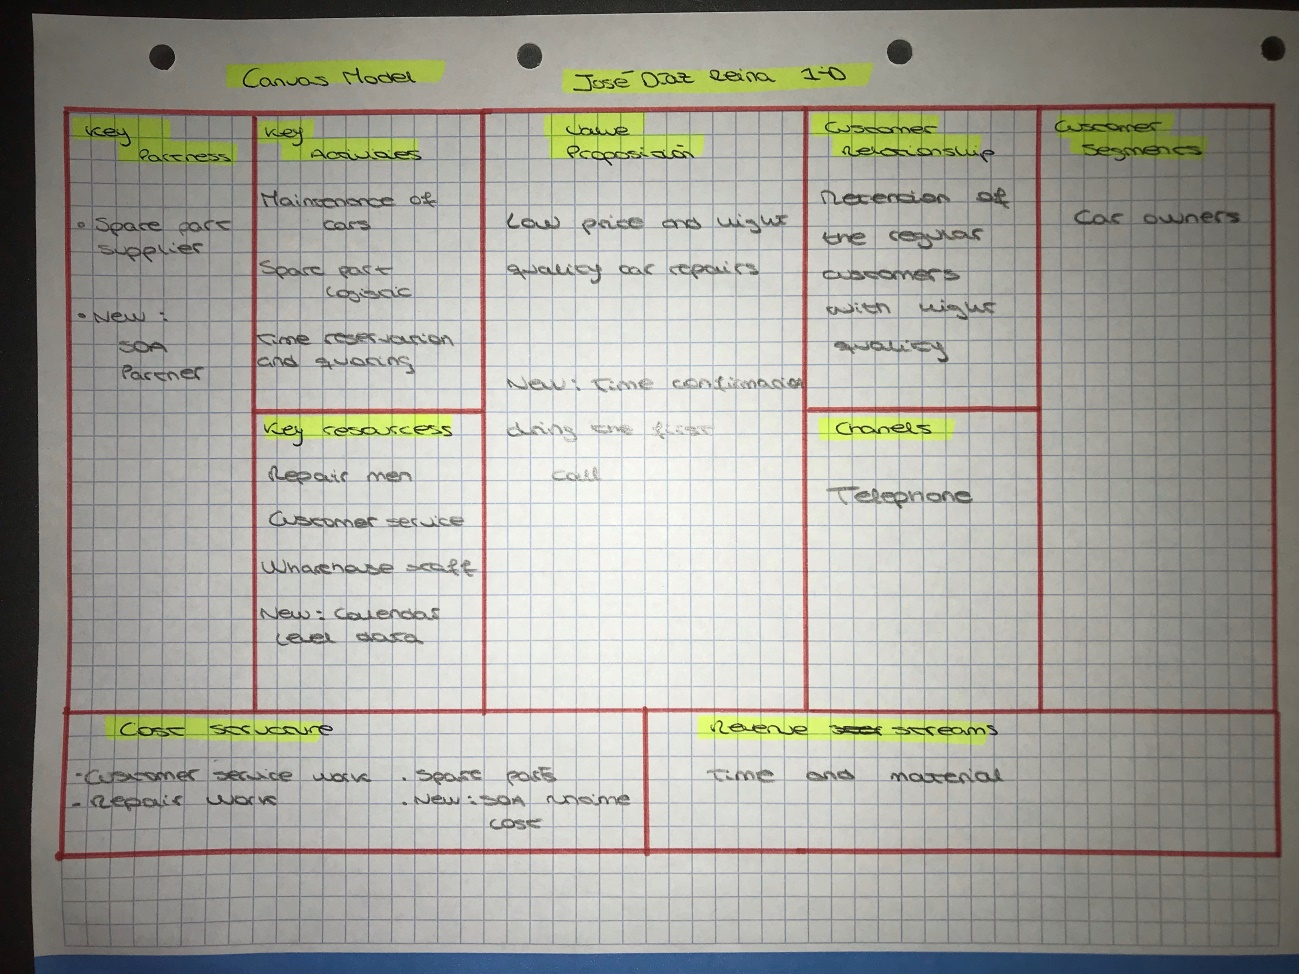 Canvas Model
José Díaz Reina 1-D
Key
Partness
Spare part
supplier
New :
SOA
Partner
Key
Activities
Maintenance of
cars
Spare part
Logistic
Time reservation
and quoting
Key resourcess
Repair men
Customer service
Wharehase staff
New: Calendar
level data
Value
Proposición
Low price and hight
quality car repairs
New: Time confirmación
dring the first
call
Customer
Relationship
Retention of
the regular
customers
with hight
quality
Chanels
Telephone
Customer
Segments
Car owners
Cost structure
-Customer service work
- Repair work
. Spare part
. New: SOA rname
cost
Revenue streams
Time and material